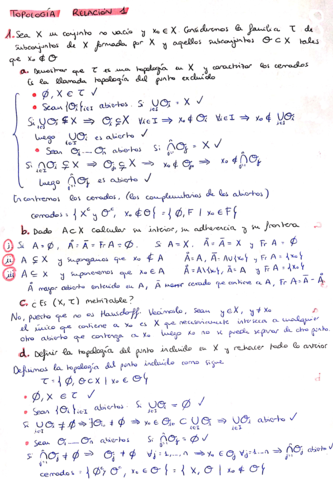 TOPOLOGÍA RELACIÓN 1
1. Sea X un conjunto no vacío y x₀ ∈ X. Consideremos la familia τ de
subconjuntos de X formada por X y aquellos subconjuntos O ⊂ X tales
que x₀ ∉ O
a. Demostrar que τ es una topología en X y caracterizar los cerrados
Es la llamada topología del punto excluido
• ∅, X ∈ τ ✓
• Sean {Oᵢ}ᵢ∈I abiertos. Si ⋃ᵢ∈I Oᵢ = X ✓
Si ⋃ᵢ∈I Oᵢ ⊊ X ⇒ Oᵢ ⊊ X ∀i∈I ⇒ x₀ ∉ Oᵢ ∀i∈I ⇒ x₀ ∉ ⋃ᵢ∈I Oᵢ
luego ⋃ᵢ∈I Oᵢ es abierto ✓
• Sean O₁ ... Oₙ abiertos Si ⋂ Oⱼ = X ✓
Si ⋂ Oⱼ ⊊ X ⇒ Oⱼ₀ ⊊ X ⇒ x₀ ∉ Oⱼ₀ ⇒ x₀ ∉ ⋂ Oⱼ
luego ⋂ Oⱼ es abierto ✓
Encontremos los cerrados. (los complementarios de los abiertos)
cerrados = { Xᶜ y Oᶜ, x₀ ∉ O } = { ∅, F | x₀ ∈ F }
b. Dado A ⊂ X calcular su interior, su adherencia y su frontera
i) Si A = ∅, Å = Ā = Fr A = ∅. Si A = X. Å = Ā = X y Fr A = ∅
ii) A ⊊ X y supongamos que x₀ ∉ A Å = A, Ā = A ∪ {x₀}, y Fr A = {x₀}
iii) A ⊊ X y suponemos que x₀ ∈ A Å = A \ {x₀}, Ā = A y Fr A = {x₀}
Å mayor abierto contenido en A, Ā menor cerrado que contiene a A, Fr A = Ā - Å
c. ¿Es (X, τ) metrizable?
No, puesto que no es Hausdorff. Veámoslo, sean y ∈ X, y ≠ x₀
el único que contiene a x₀ es X que necesariamente interseca a cualquier
otro abierto que contenga a x₀. Luego x₀ no se puede separar de otro punto
d. Definir la topología del punto incluido en X y rehacer todo lo anterior
Definimos la topología del punto incluido como sigue
τ = { ∅, O ⊂ X | x₀ ∈ O }
• ∅, X ∈ τ ✓
• Sean {Oᵢ}ᵢ∈I abiertos. Si ⋃ᵢ∈I Oᵢ = ∅ ✓
Si ⋃ᵢ∈I Oᵢ ≠ ∅ ⇒ ∃ Oᵢ₀ ≠ ∅ ⇒ x₀ ∈ Oᵢ₀ ⊂ ⋃ᵢ∈I Oᵢ ⇒ ⋃ᵢ∈I Oᵢ abierto ✓
• Sean O₁ ... Oₙ abiertos Si ⋂ Oⱼ = ∅ ✓
Si ⋂ Oⱼ ≠ ∅ ⇒ Oⱼ ≠ ∅ ∀j = 1, ..., n ⇒ x₀ ∈ Oⱼ ∀j = 1, ..., n ⇒ ⋂ Oⱼ abierto ✓
cerrados = { ∅ᶜ y Oᶜ, x₀ ∈ O } = { X, O | x₀ ∉ O }